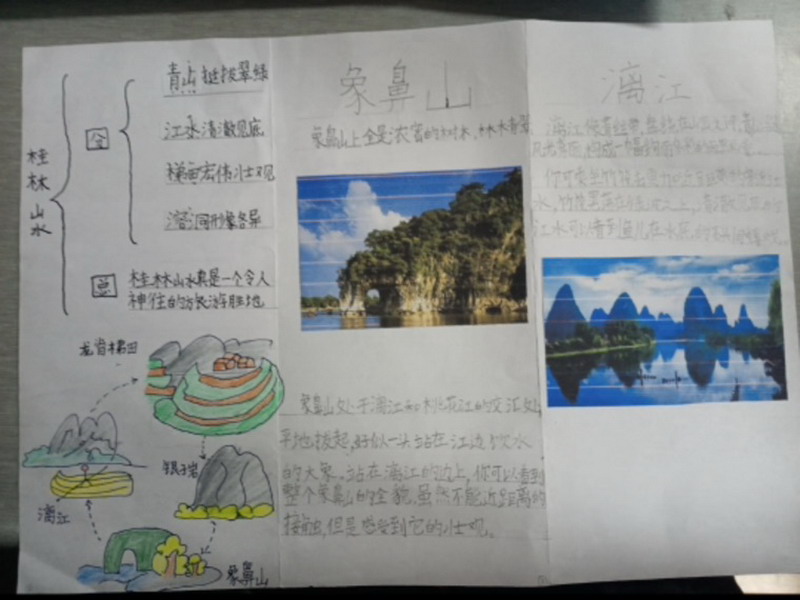 桂林山水
分
青山挺拔翠绿
江水清澈见底
梯田宏伟壮观
溶洞形像各异
总
桂林山水真是一个令人
神往的旅游胜地
龙脊梯田
银子岩
漓江
象鼻山
象鼻山
象鼻山上全是浓密的树木,林木青翠
象鼻山处于漓江和桃花江的交汇处
平地拔起,好似一头站在江边饮水
的大象,站在漓江的边上,你可以看到
整个象鼻山的全貌,虽然不能近距离的
接触,但是感受到它的壮观。
漓江
漓江像青丝带,
你可乘坐竹筏去
水,竹筏
江水可以看到鱼儿在水底